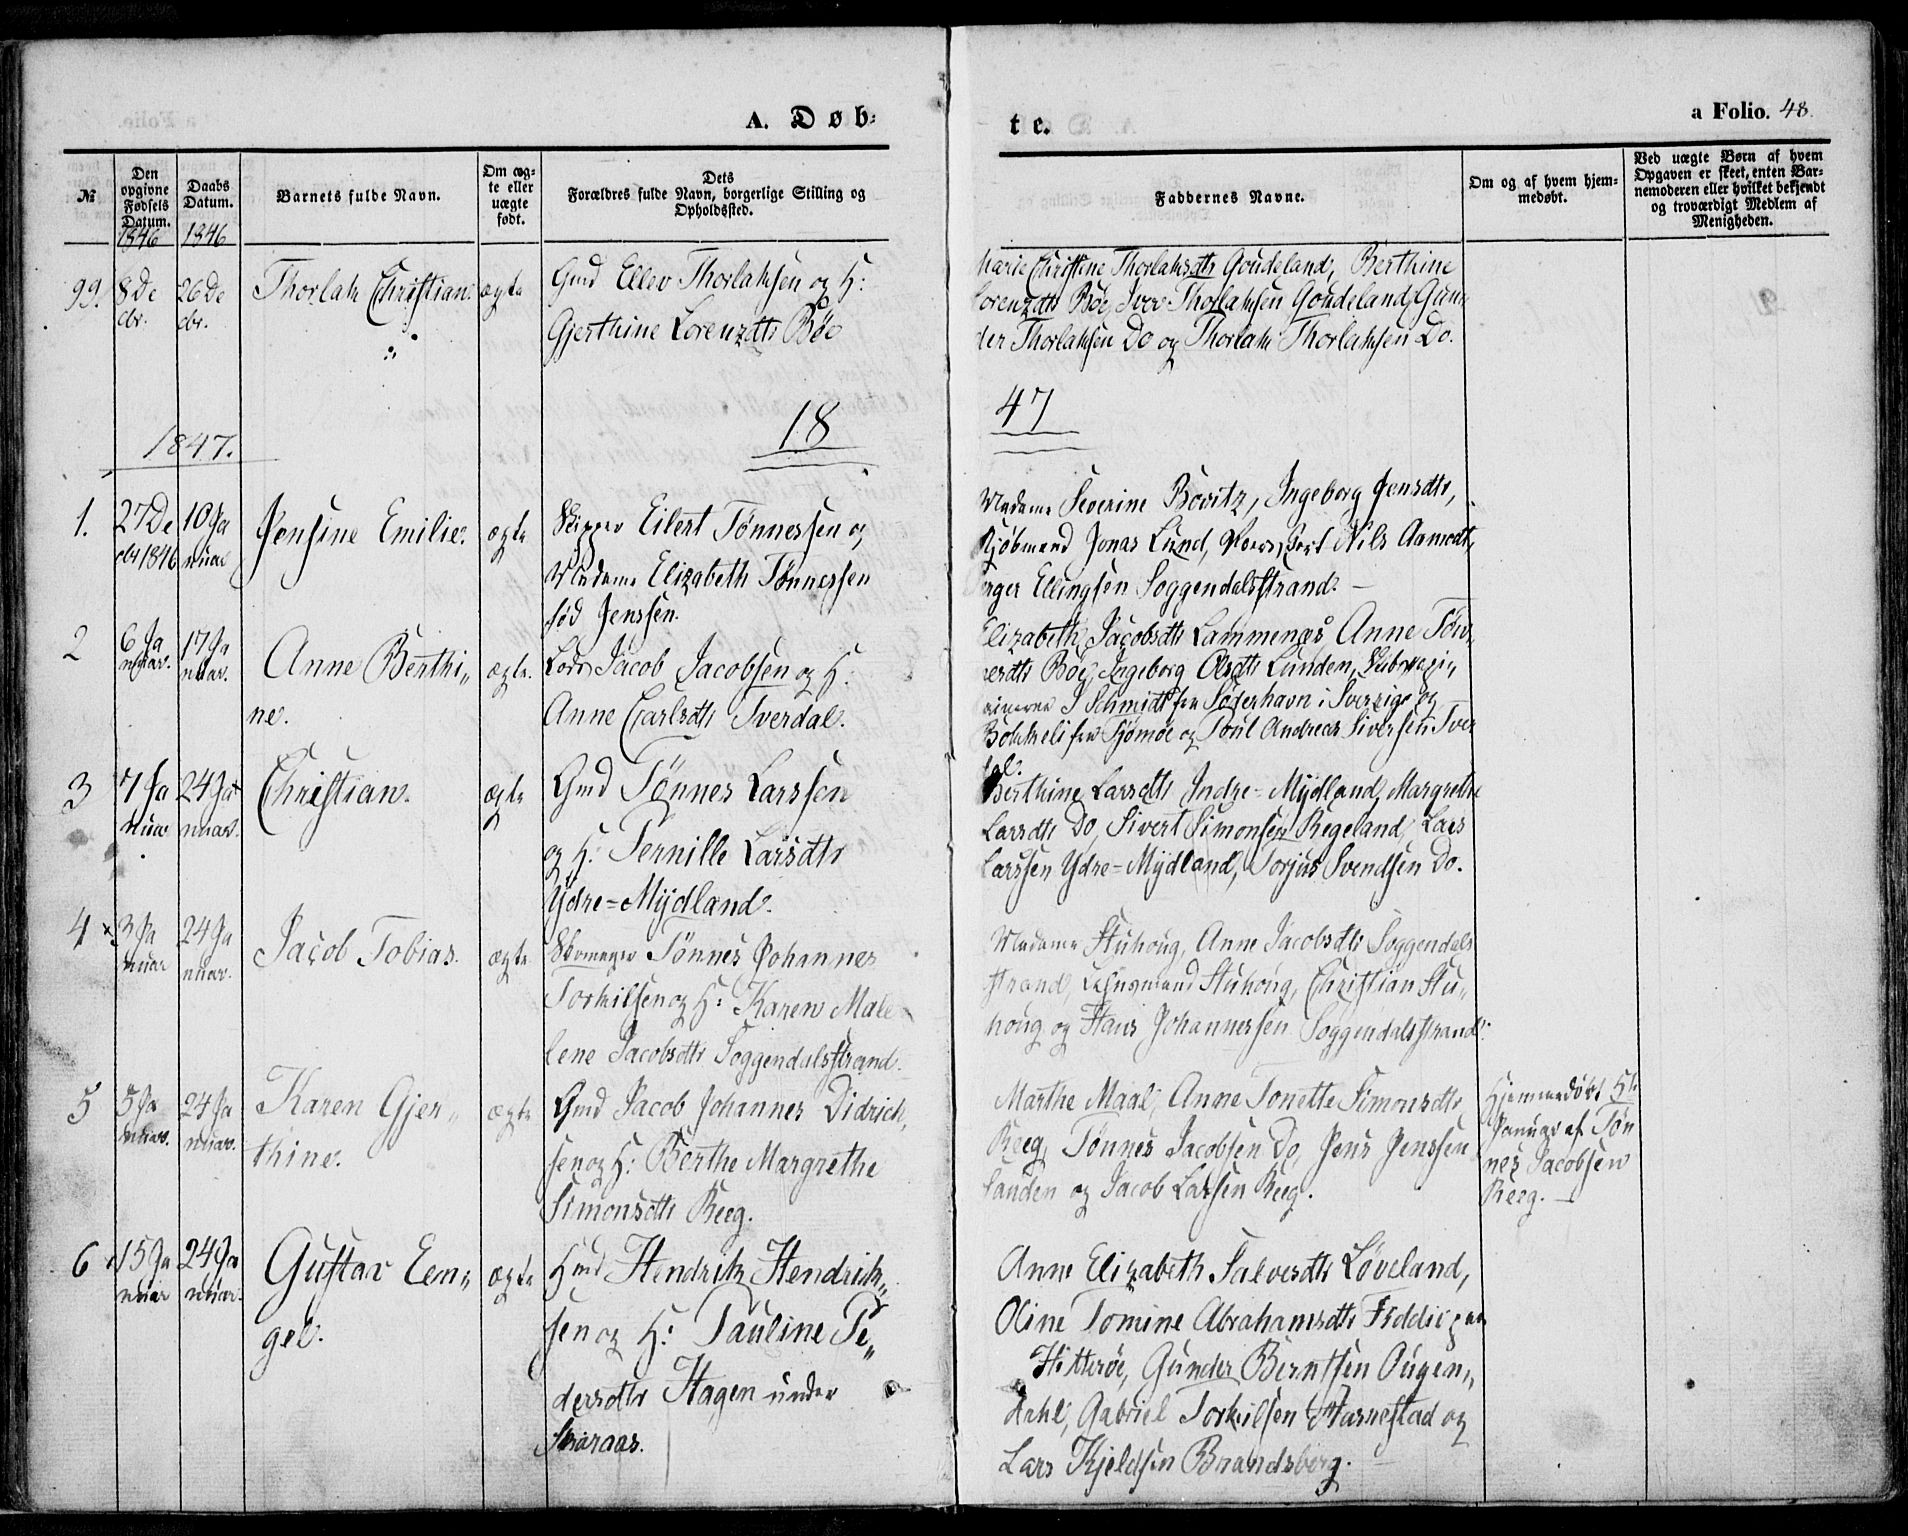 A. Døb-
te.
a Folio. 48.
No
Den opgivne Fødsels Datum.
Daabs Datum.
Barnets fulde Navn.
Om ægte eller uægte født.
Dets Forældres fulde Navn, borgerlige Stilling og Opholdssted.
Faddernes Navne.
Om og af hvem hjemmedøbt.
Ved uægte Børn af hvem Opgaven er skeet, enten Barnemoderen eller hvilket bekjendt og troværdigt Medlem af Menigheden.
1846
1846
99. 8 De
cbr.
26 De
cbr.
Thorlak Christian.
ægte
Gmd Ellev Thorlaksen og H:
Gjerthine Lorenzdtr Bøe
Marie Christine Thorlaksdtr Goudeland, Berthine
Lorenzdtr Bøe, Iver Thorlaksen Goudeland, Gun
der Thorlaksen Do og Thorlak Thorlaksen Do.
1847.
18
47
1.
27 De
cbr 1846
10 Ja
nuar
Jensine Emilie.
ægte
Skipper Eilert Tønnessen og
Madame Elizabeth Tønnessen
fød Jenssen.
Madame Severine Bowitz, Ingeborg Jensdtr,
Kjøbmand Jonas Lund, Nils Aamodt,
Ellingsen Soggendalsstrand.
2
6 Ja
nuar.
17 Ja
nuar.
Anne Berthi„
ne.
ægte.
Lods Jacob Jacobsen og H:
Anne Carlsdtr Tverdal.
Elizabeth Jacobsdtr Lammenæs Anne Tøn
nesdtr Bøe, Ingeborg Olsdtr Lunden,
S Schmidt fra Søderhavn i Sverrige og
fra Tjømøe og Poul Andreas Siversen Tver
dal.
3
7 Ja
nuar
24 Ja
nuar.
Christian.
ægte
Gmd Tønnes Larssen
og H: Pernille Larsdtr
Ydre=Mydland.
Berthine Larsdtr Indre=Mydland, Margrethe
Larsdtr Do, Sivert Simonsen Regeland, Lars
Larssen Ydre=Mydland, Torjus Svendsen Do.
4
3 Ja
nuar
24 Ja
nuar.
Jacob Tobias.
ægte
Skomager Tønnes Johannes
Torkilsen og H: Karen Male
lene Jacobsdtr Soggendalsstrand.
Madame Stuhoug, Anne Jacobsdtr Soggendals
strand, Lehnsmand Stuhoug, Christian Stu„
houg og Hans Johannessen Soggendalsstrand.
5
5 Ja
nuar.
24 Ja
nuar.
Karen Gjer„
thine.
ægte
Gmd Jacob Johannes Didrich„
sen og H: Berthe Margrethe
Simonsdtr Reeg.
Marthe Maal, Anne Tonette Simonsdtr
Reeg, Tønnes Jacobsen Do, Jens Jenssen
Sanden og Jacob Larsen Reeg.
Hjemmedøbt 5te
Januar af Tøn
nes Jacobsen
Reeg.
6
15 Ja
nuar
24 Ja
nuar.
Gustav Een„
gel.
ægte
Hmd Hendrik Hendrik„
sen og H: Pauline Pe„
dersdtr Hagen under
Skaraas.
Anne Elizabeth Salvesdtr Løveland,
Oline Tomine Abrahamsdtr Feddie paa
Hitterøe, Gunder Berntsen Ougen„
dahl, Gabriel Torkilsen Stornestad og
Lars Kjeldsen Brandsberg.